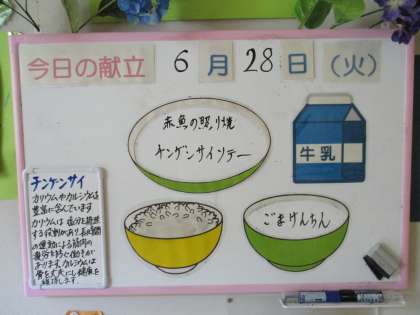 今日の献立 6月28日（火）
赤魚の照り焼
チンゲンサイソテー
牛乳
ごまけんちん
チンゲンサイ
カリウムやカルシウムを
豊富に含んでいます
カリウムは塩分を排泄
する役割があり、長時間
の運動による筋肉の
疲労を防ぐ働きが
あります。カルシウムは
骨を丈夫にし健康を
維持します。